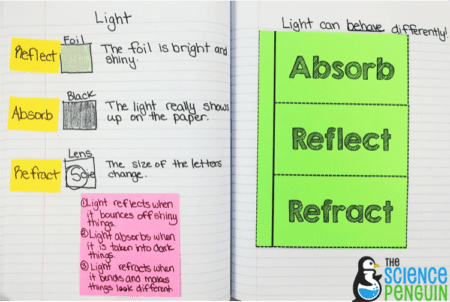 Light
Reflect
Foil
The foil is bright and
shiny.
Absorb
Black
The light really shows
up on the paper.
Refract
Lens
The size of the letters
change.
① Light reflects when
it bounces off shiny
things.
② Light absorbs when
it is taken into dark
things.
③ Light refracts when
it bends and makes
things look different
Light can behave differently!
Absorb
Reflect
Refract
THE
SCIENCE
PENGUIN